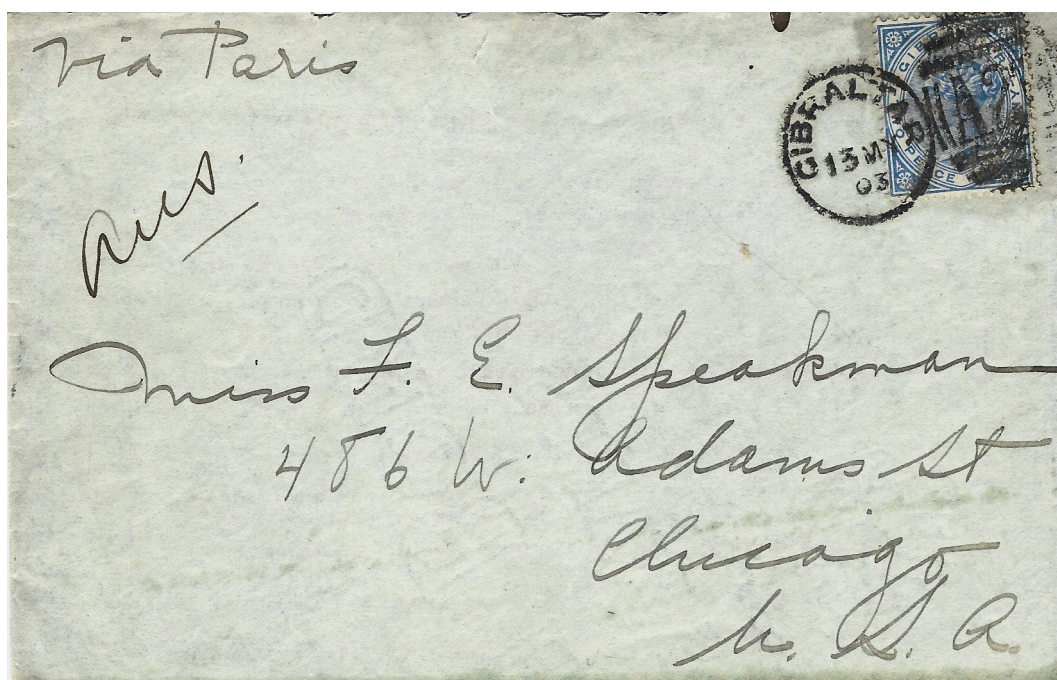 Via Paris
GIBRALTAR
13 MY
03
Ans.
Miss F. E. Speakman
486 W. Adams St
Chicago
U. S. A.